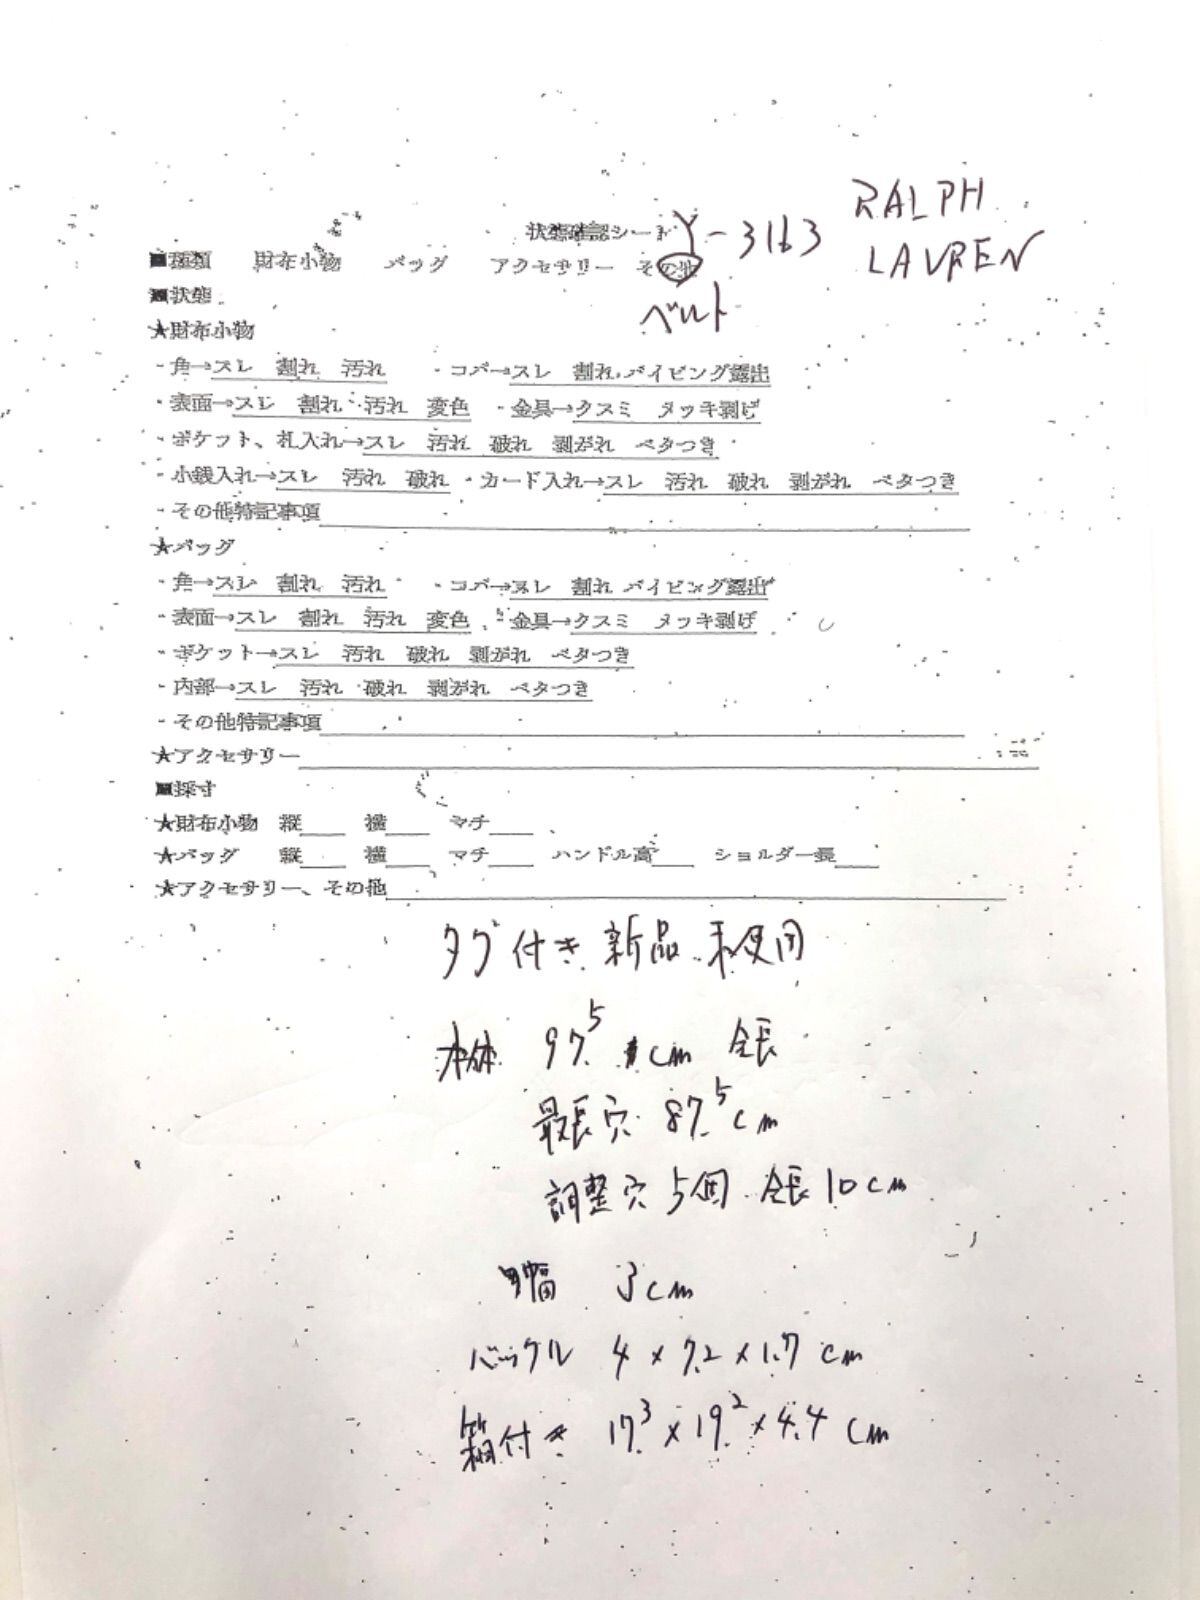 RALPH
状態確認シート Y-3163 LAUREN
■種類 財布小物 バッグ アクセサリー その他
■状態 ベルト
★財布小物
・角→スレ 割れ 汚れ ・コバ→スレ 割れ パイピング露出
・表面→スレ 割れ 汚れ 変色 ・金具→クスミ メッキ剥げ
・ポケット、札入れ→スレ 汚れ 破れ 剥がれ ベタつき
・小銭入れ→スレ 汚れ 破れ ・カード入れ→スレ 汚れ 破れ 剥がれ ベタつき
・その他特記事項
★バッグ
・角→スレ 割れ 汚れ ・コバ→スレ 割れ パイピング露出
・表面→スレ 割れ 汚れ 変色 ・金具→クスミ メッキ剥げ
・ポケット→スレ 汚れ 破れ 剥がれ ベタつき
・内部→スレ 汚れ 破れ 剥がれ ベタつき
・その他特記事項
★アクセサリー
■採寸
★財布小物 縦 横 マチ
★バッグ 縦 横 マチ ハンドル高 ショルダー長
★アクセサリー、その他
タグ付き 新品 未使用
本体 97.5 cm 全長
最長穴 87.5cm
調整穴 5個 全長10cm
幅 3cm
バックル 4×7.2×1.7cm
箱付き 17.3×19.2×4.4cm